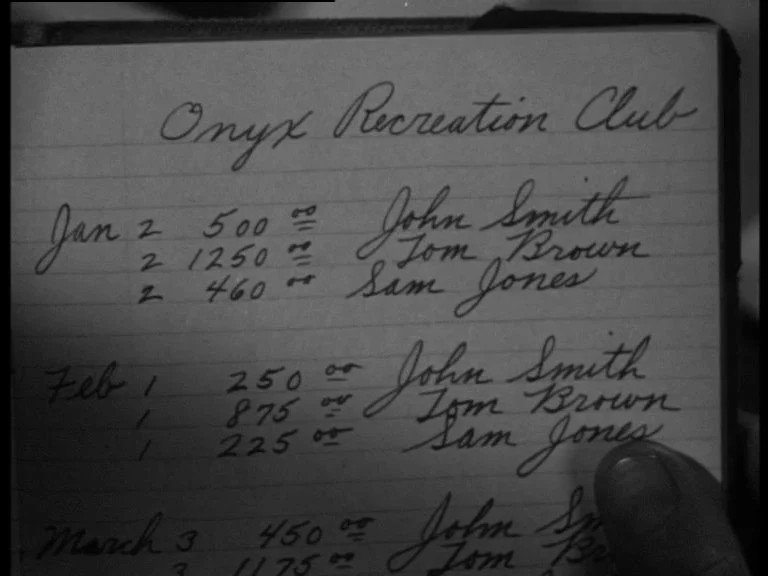 Onyx Recreation Club
Jan 2 500 00 John Smith
2 1250 00 Tom Brown
2 460 00 Sam Jones
Feb 1 250 00 John Smith
1 875 00 Tom Brown
1 225 00 Sam Jones
March 3 450 00 John
3 1175 00 Tom